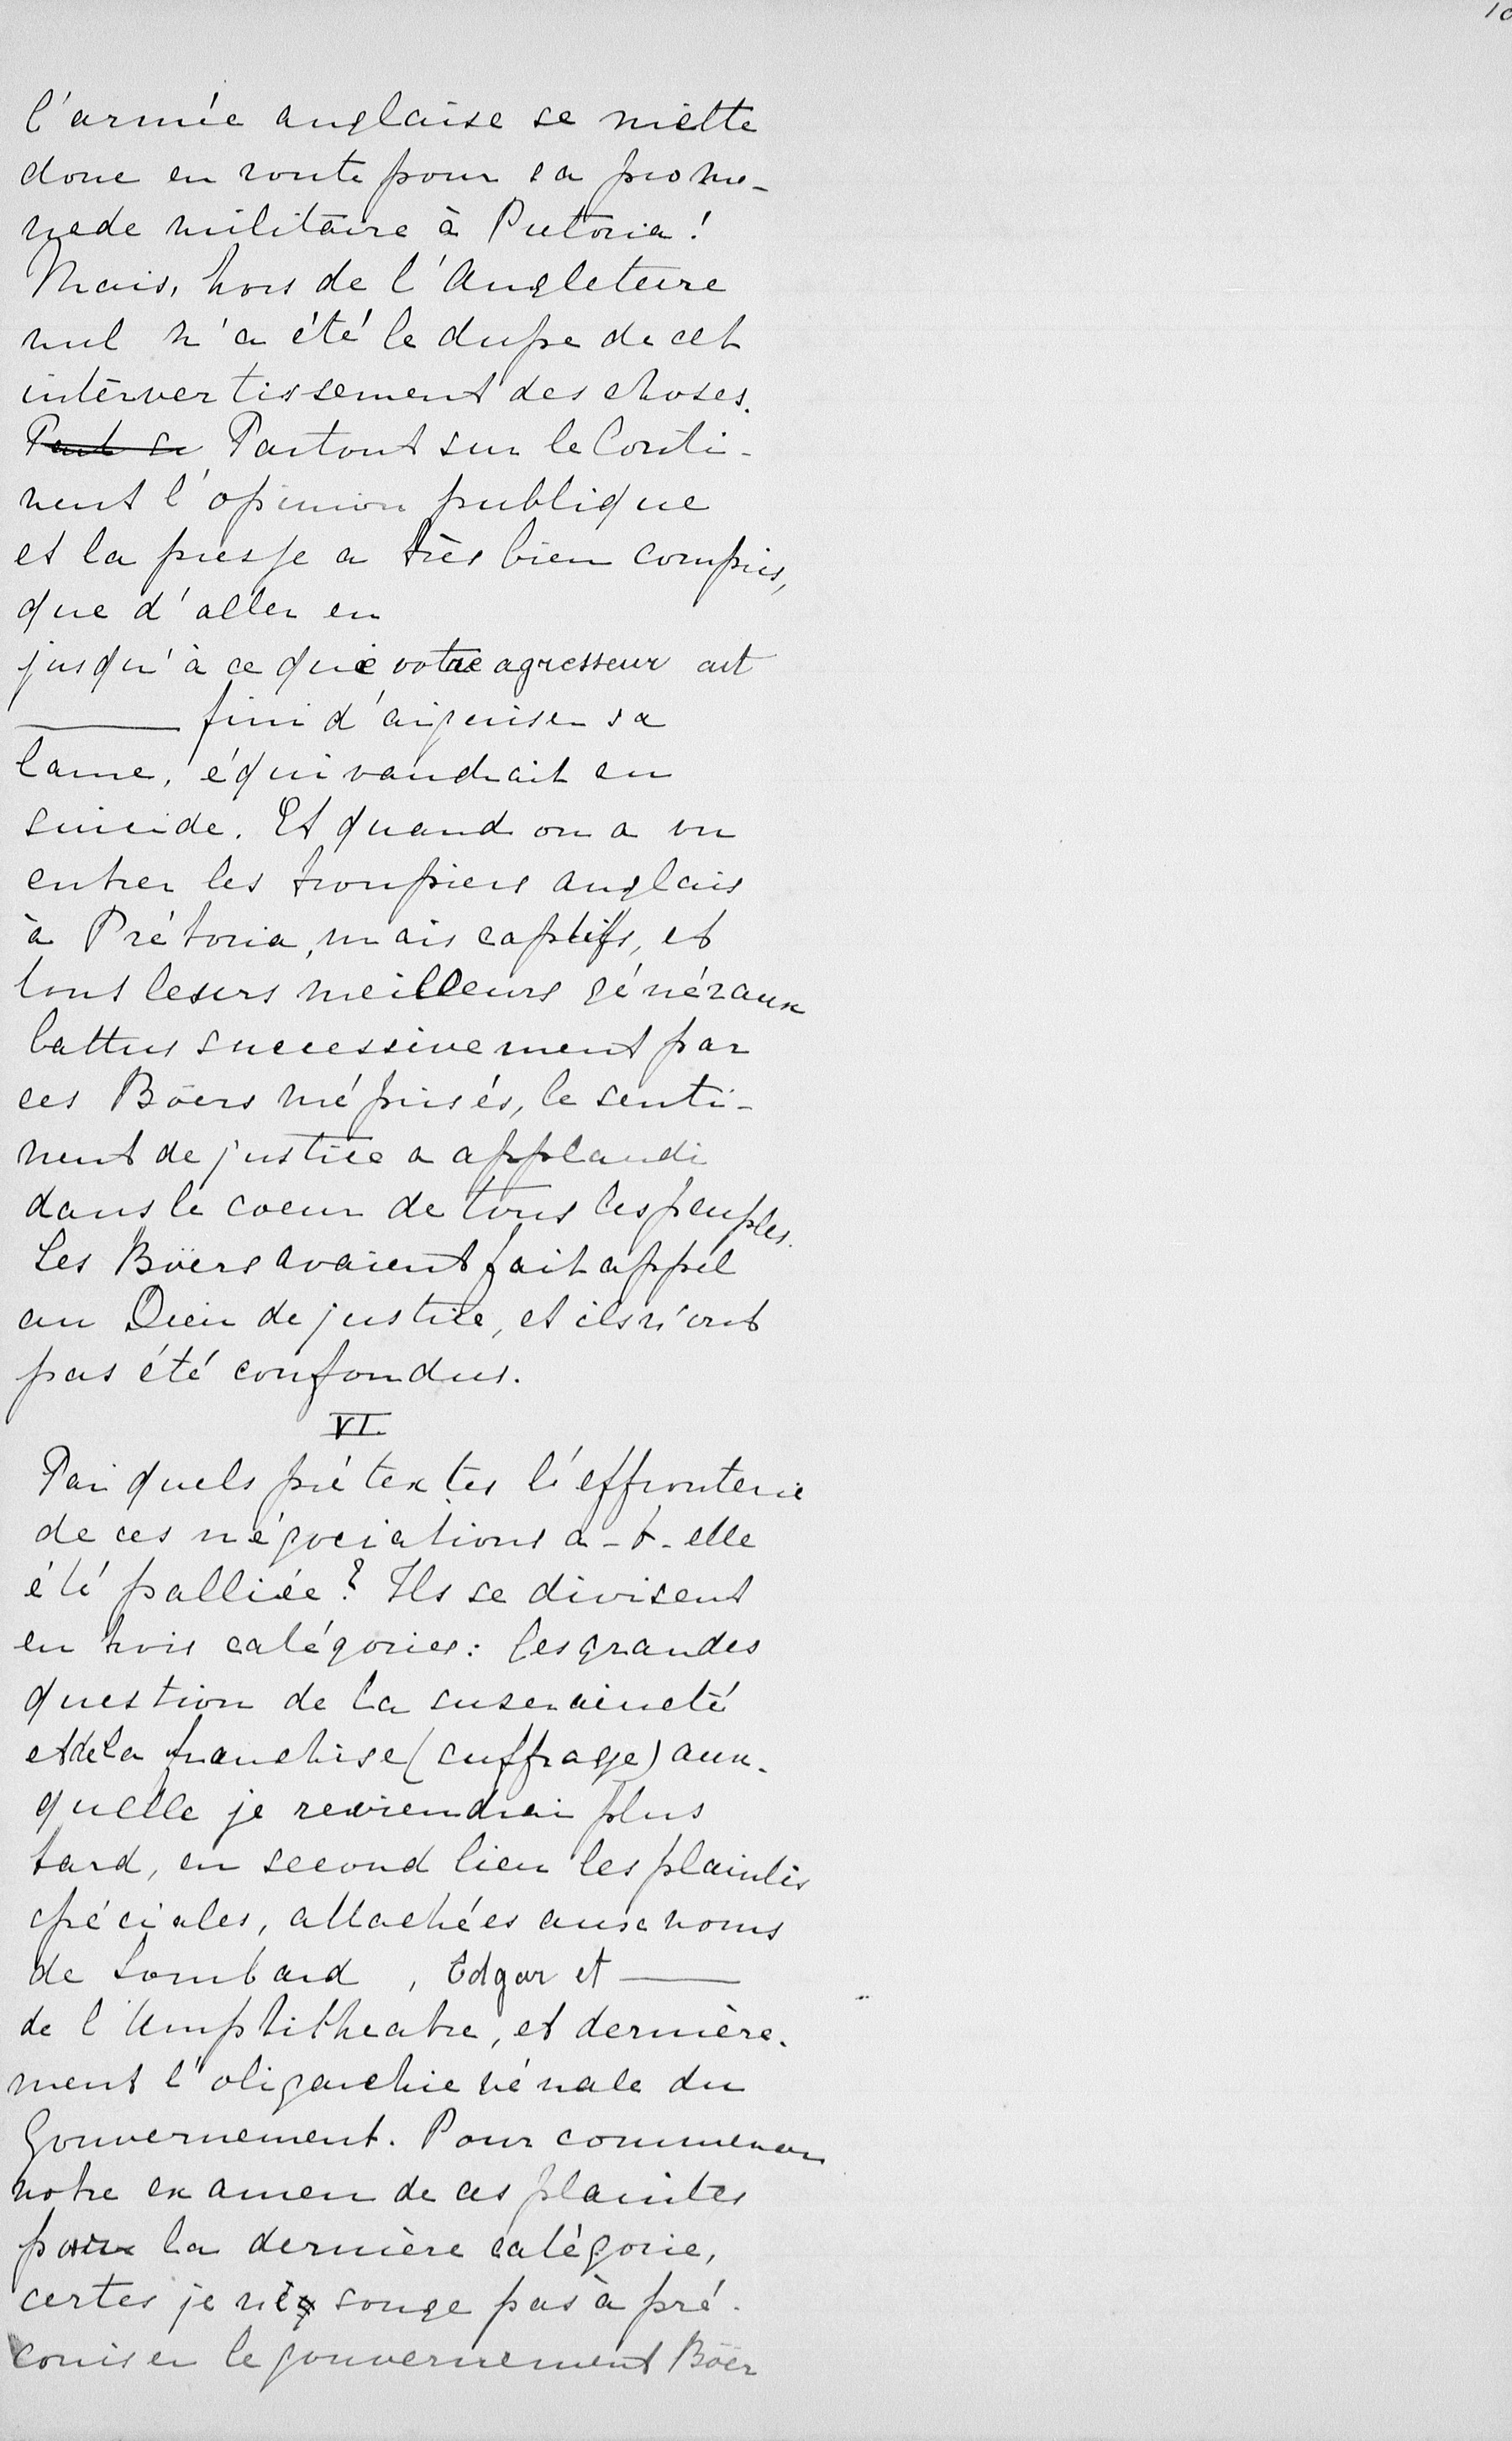 10
l'armée anglaise se mette
donc en route pour sa prome-
nade militaire à Pretoria!
Mais, hors de l'Angleterre
nul n'a été le dupe de cet
intervertissement des choses.
Part su Partout sur le Conti-
nent l'opinion publique
et la presse a très bien compris,
que d'aller en
jusqu'à ce que votre agresseur ait
——— fini d'aiguiser sa
lame, équivaudrait au
suicide. Et quand on a vu
entrer les troupiers anglais
à Prétoria, mais captifs, et
tous leurs meilleurs généraux
battus successivement par
ces Boërs méprisés, le senti-
ment de justice a applaudi
dans le coeur de tous les peuples.
Les Boërs avaient fait appel
au Dieu de justice, et ils n'ont
pas été confondus.
VI.
Par quels prétextes l'effronterie
de ces négociations a-t-elle
été palliée? Ils se divisent
en trois catégories: les grandes
question de la suseraineté
et de la franchise (suffrage) aux-
quelle je reviendrai plus
tard, en second lieu les plaintes
spéciales, attachées aux noms
de Lombard , Edgar et ———
de l'Amphitheatre, et dernière-
ment l'oligarchie vénale du
Gouvernement. Pour commencer
notre examen de ces plaintes
pour la dernière catégorie,
certes je ne songe pas à pré-
coniser le gouvernement Boër